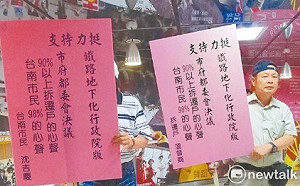 支持力挺
鐵路地下化行政院版
市府都委會決議
90%以上拆遷戶的心聲
台南市民98%的心聲
台南市民 沈吉慶
支持力挺
鐵路地下化行政院版
市府都委會決議
90%以上拆遷戶的心聲
台南市民98%的心聲
拆遷戶
newtalk